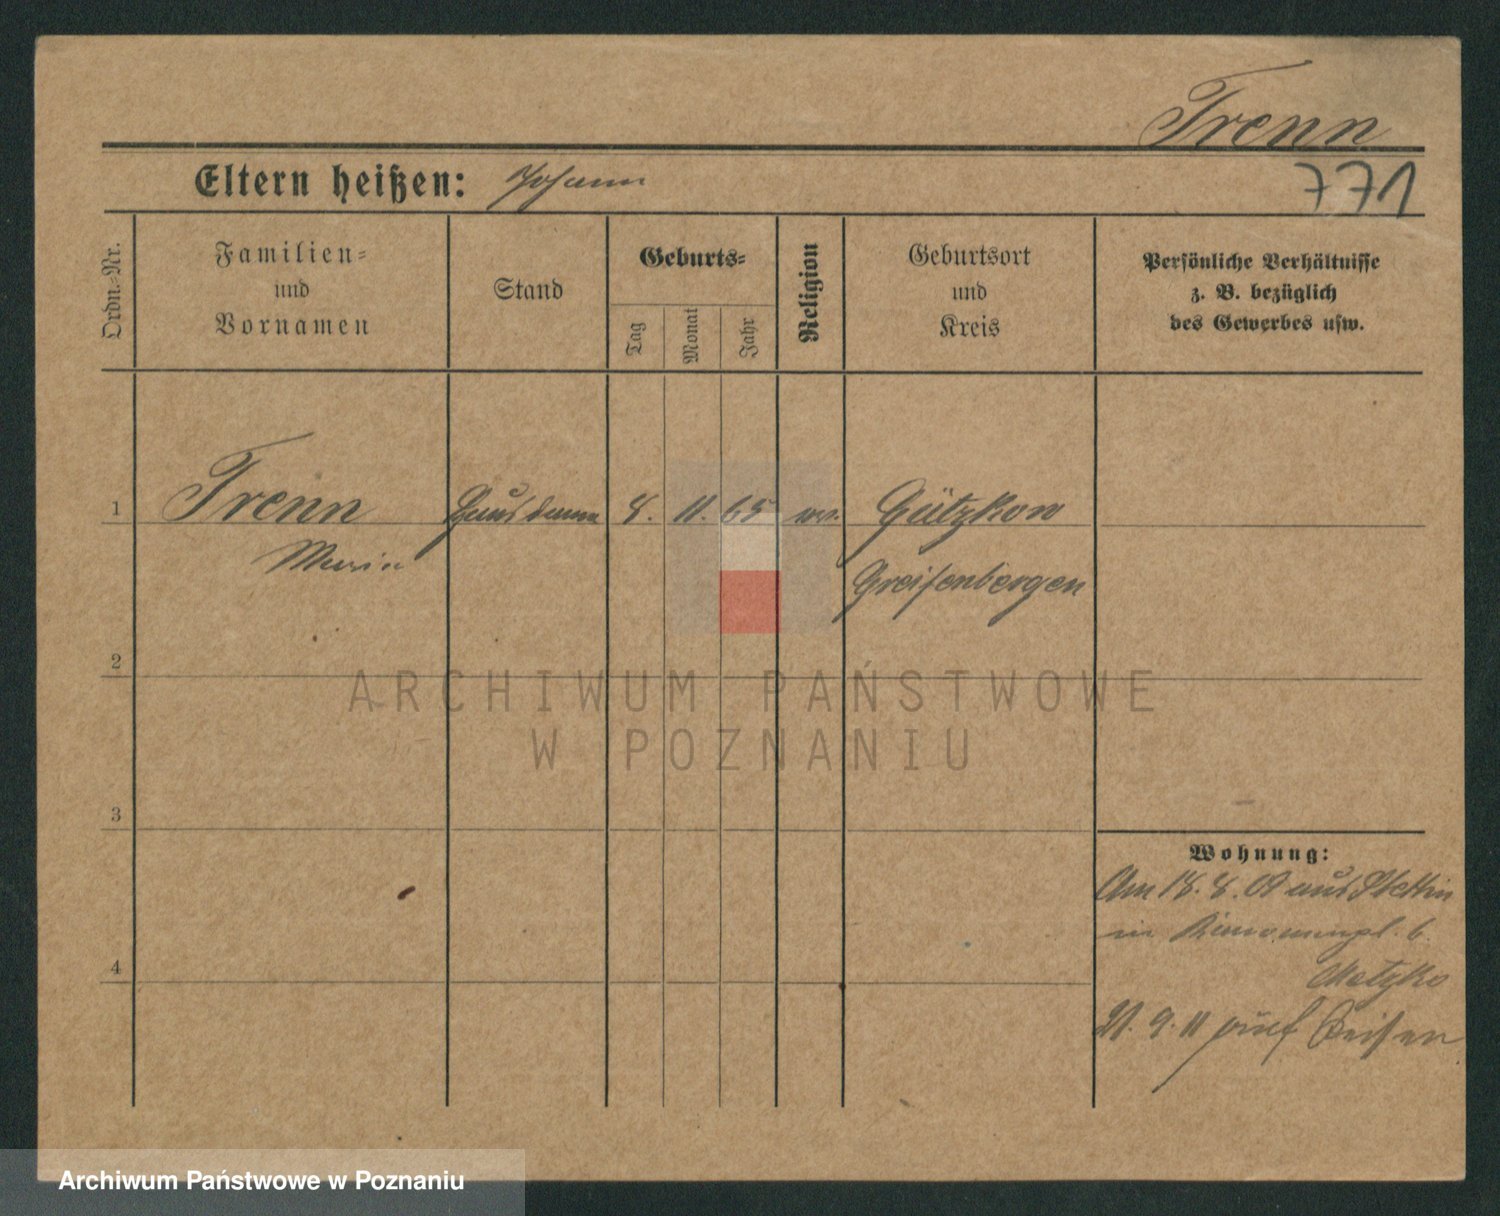 Trenn
Eltern heißen: Johann
771
Ordn.-Nr.
Familien-
und
Vornamen
Stand
Geburts-
Tag
Monat
Jahr
Religion
Geburtsort
und
Kreis
Persönliche Verhältnisse
z. B. bezüglich
des Gewerbes usw.
1 Trenn Hausdame 8. 11. 65 ev. Gützkow
Marie Greifenbergen
2
ARCHIWUM PAŃSTWOWE
W POZNANIU
3
Wohnung:
Am 18. 8. 09 aus Stettin
in 6.
Metzke
4
21. 9. 11 nach
Archiwum Państwowe w Poznaniu